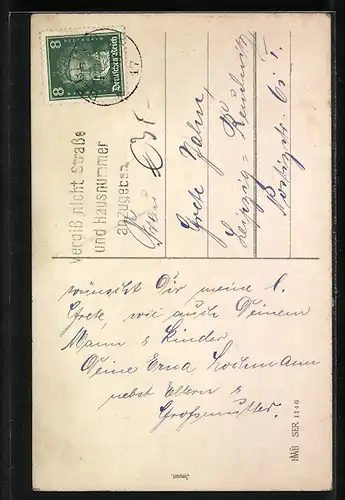 8 Deutsches Reich 8
17
Vergiß nicht Straße
und Hausnummer
anzugeben
Frau
Grete Jahn,
Leipzig = Reudnitz
wünscht Dir meine l.
Grete, wie auch Deinem
Mann & Kinder
Deine Erna Lochmann
nebst Eltern &
Großmutter.
Import.
HWB SER 1146